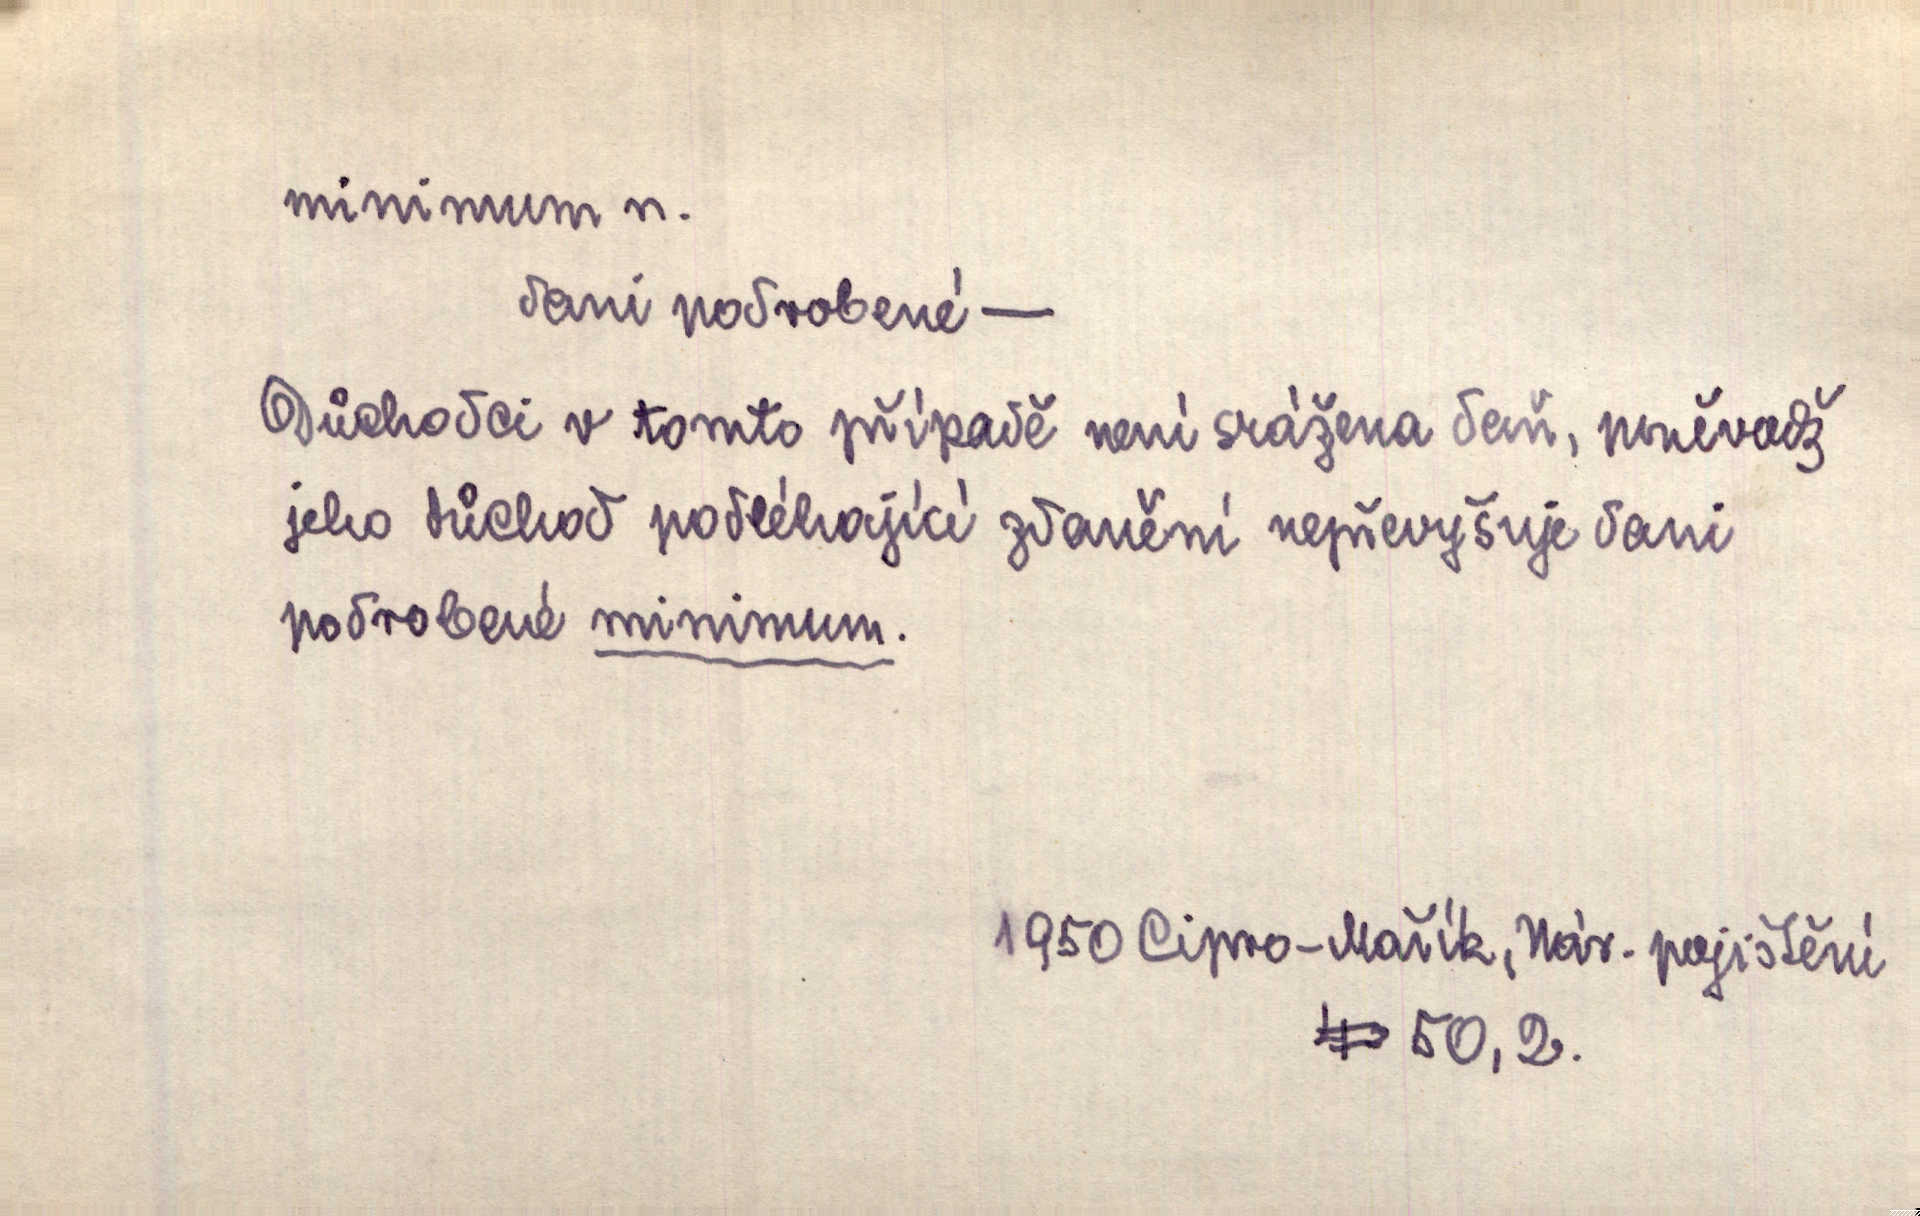 minimum n.
dani podrobené —
Důchodci v tomto případě není srážena daň, poněvadž
jeho důchod podléhající zdanění nepřevyšuje dani
podrobené minimum.
1950 Cipro-Mařík, Nár. pojištění
50, 2.